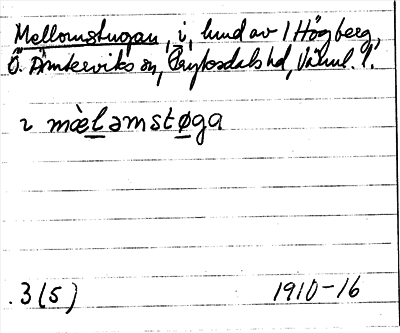 Mellomstugan, i, hund av 1 Högberg,
Ö. Ämterviks sn, Fryksdals hd, Värml. l.
ɩ mæ̀lǝmstøga
.3(5) 1910-16